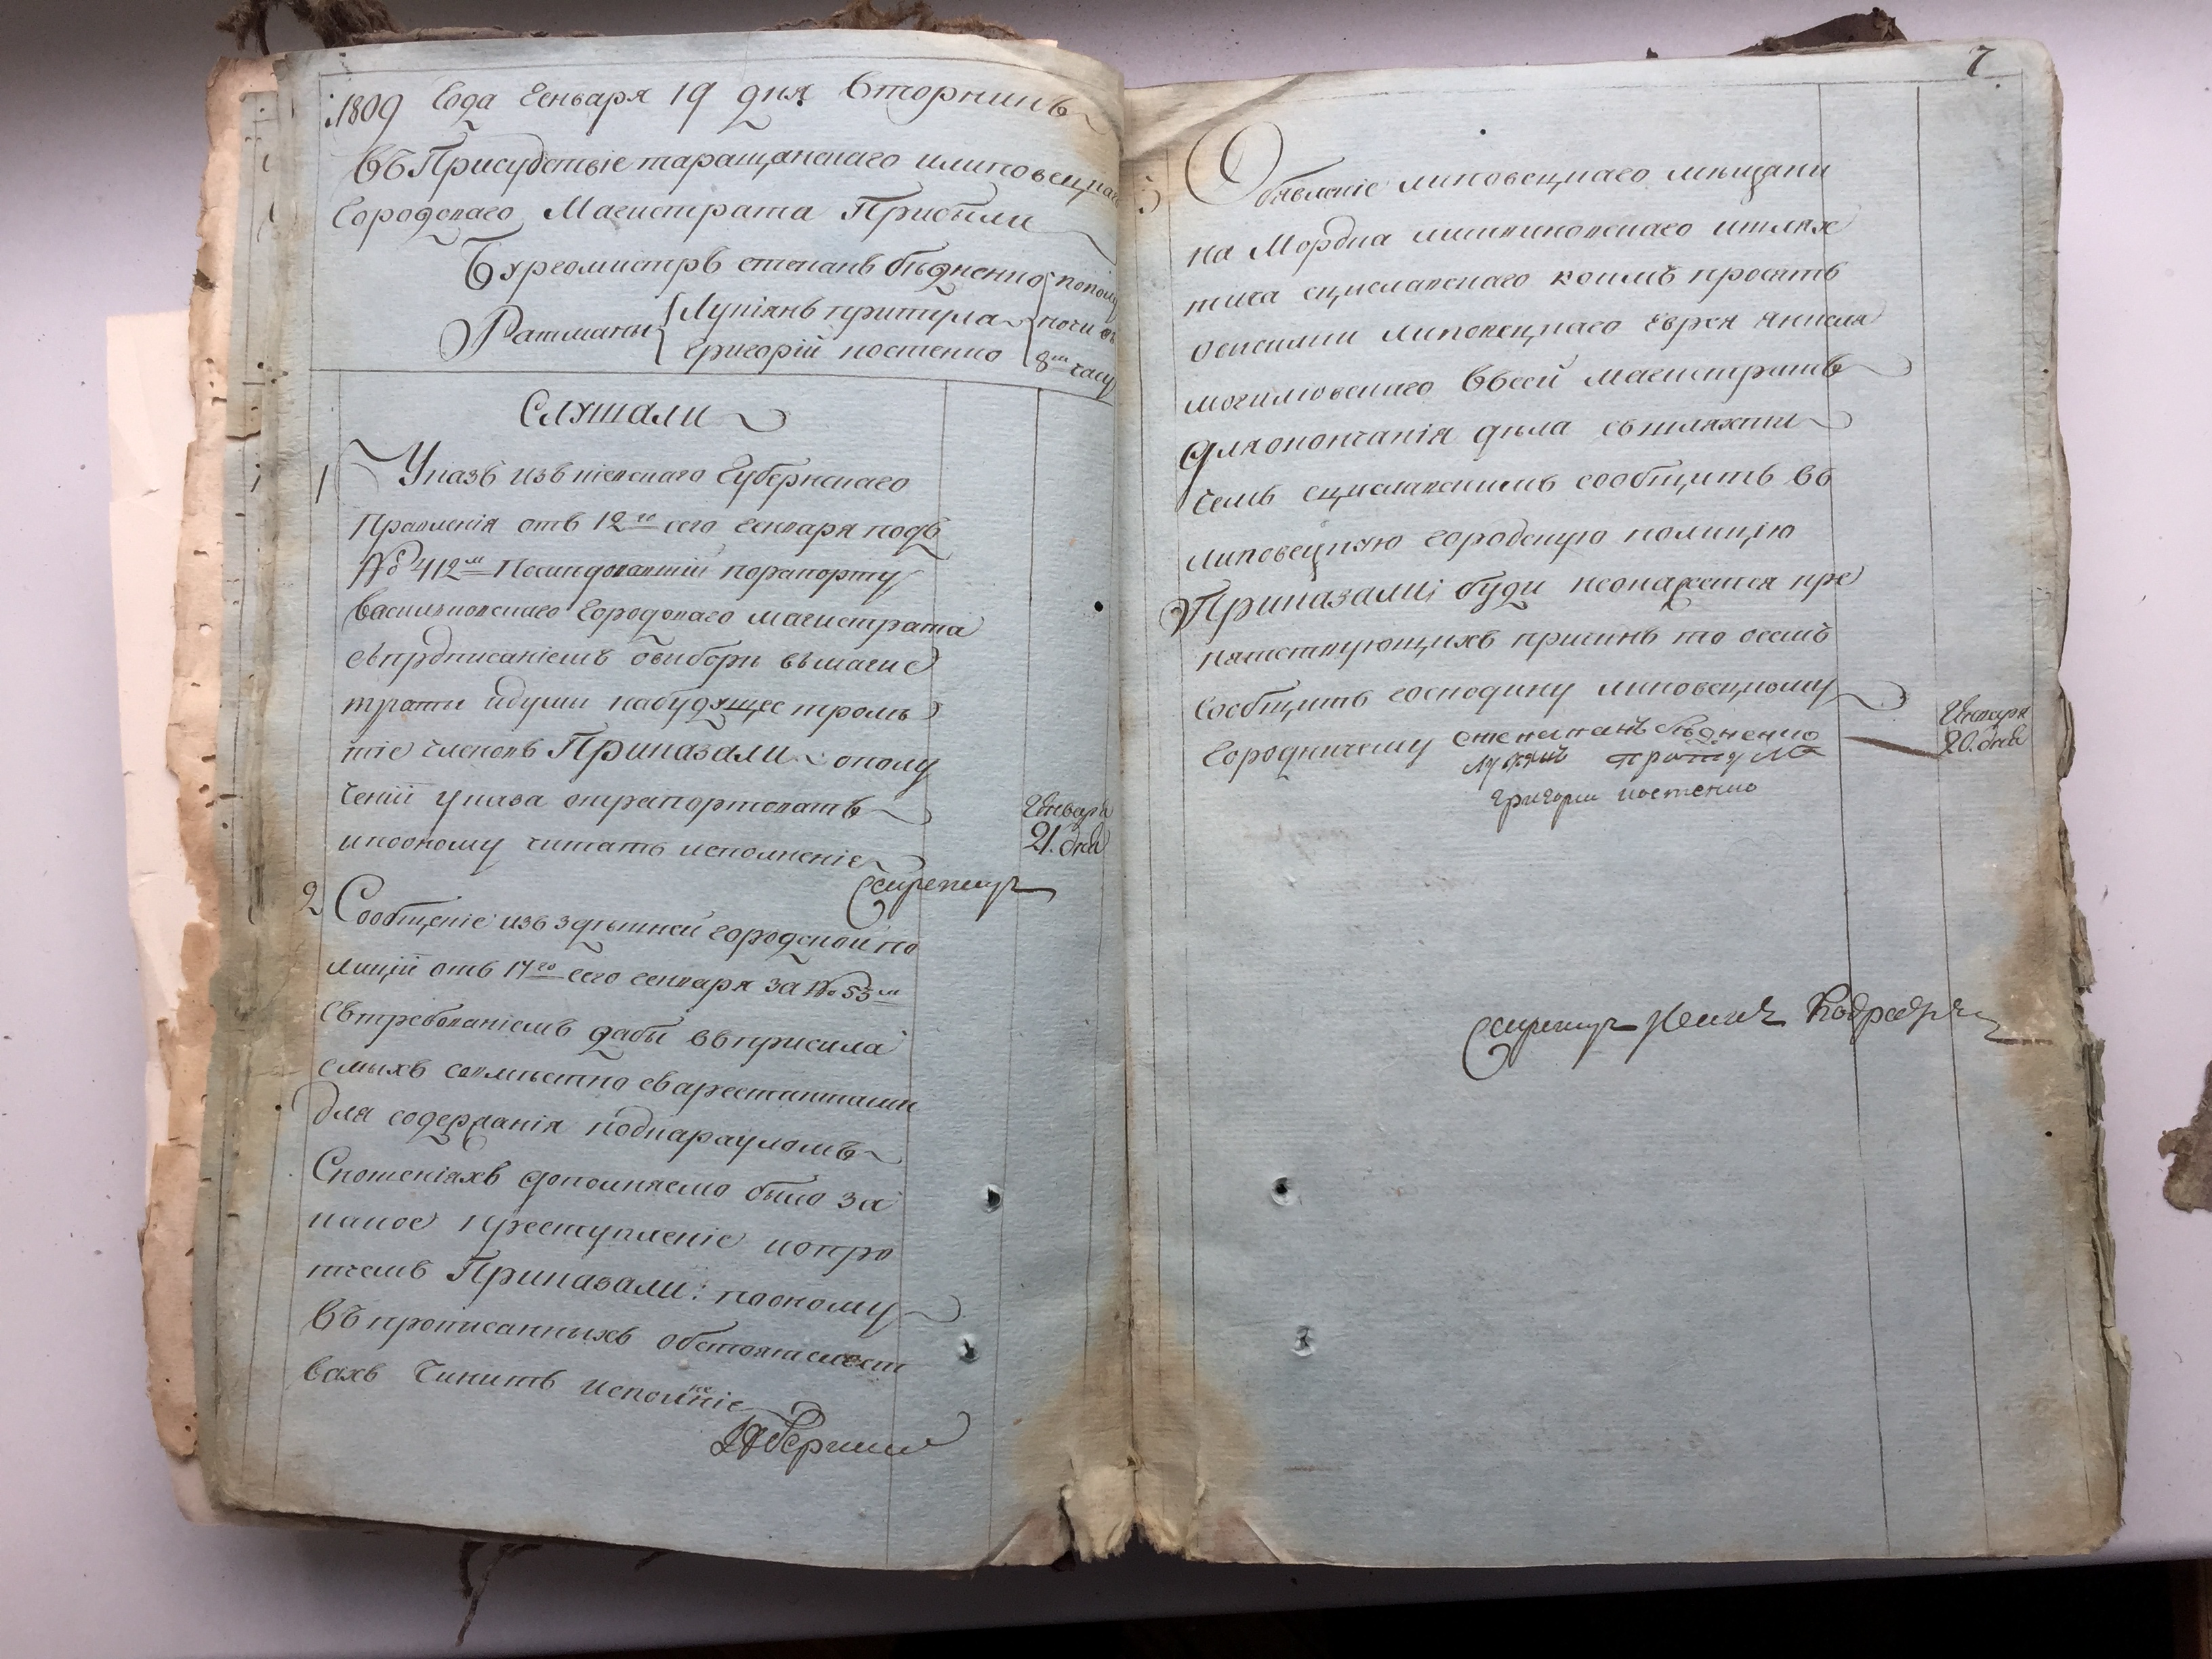 1809 Года Генваря 19 дня Вторникъ
Въ Присудствіе таращанскаго илиповецкаго
Городоваго Магистрата Прибыли
Бургомистръ степанъ бѣдненко пополу
Ратманы Лукіянъ притула ночи въ
григорій костенко 8м часу
Слушали
1 Указъ изъ кіевскаго Губернскаго
Правленія отъ 12го сего генваря подъ
№ 412м Послѣдовавшій порапорту
васильковскаго Городоваго магистрата
съ предписаніемъ овыборы въ магис
траты идумы набудущее трохлѣ
тіе членовъ Приказали ополу
ченіи указа отрапортовать
ипооному чинить исполненіе
Генваря 21. дня
Секретарь
2 Сообщеніе изъ здѣшней городской по
лиціи отъ 17го сего генваря за № 53м
Сътребованіемъ дабы въприсила
емыхъ совмѣстно съарестантами
для содержанія подкарауломъ
Сношеніяхъ дополняемо было за
какое преступленіе ипро
тчемъ Приказали: пооному
Въ прописанныхъ обстоятельст
вахъ Чинить исполненіе
7
3 Объявленіе липовецкаго мѣщани
на Мордка ишлях
тича сцислявскаго коимъ просятъ
овысылки липовецкаго Еврея Янкеля
могилювскаго въсей магистратъ
Для окончанія дѣла съшляхти
чемъ сциславскимъ сообщить въ
липовецкую городскую полицію
Приказали: буди неокажется пре
пятствующихъ причинъ то осемъ
Сообщить господину липовецкому
Городничему степанъ бѣдненко
Генваря 20. дня
лукянъ притула
григорій костенко
Секретарь